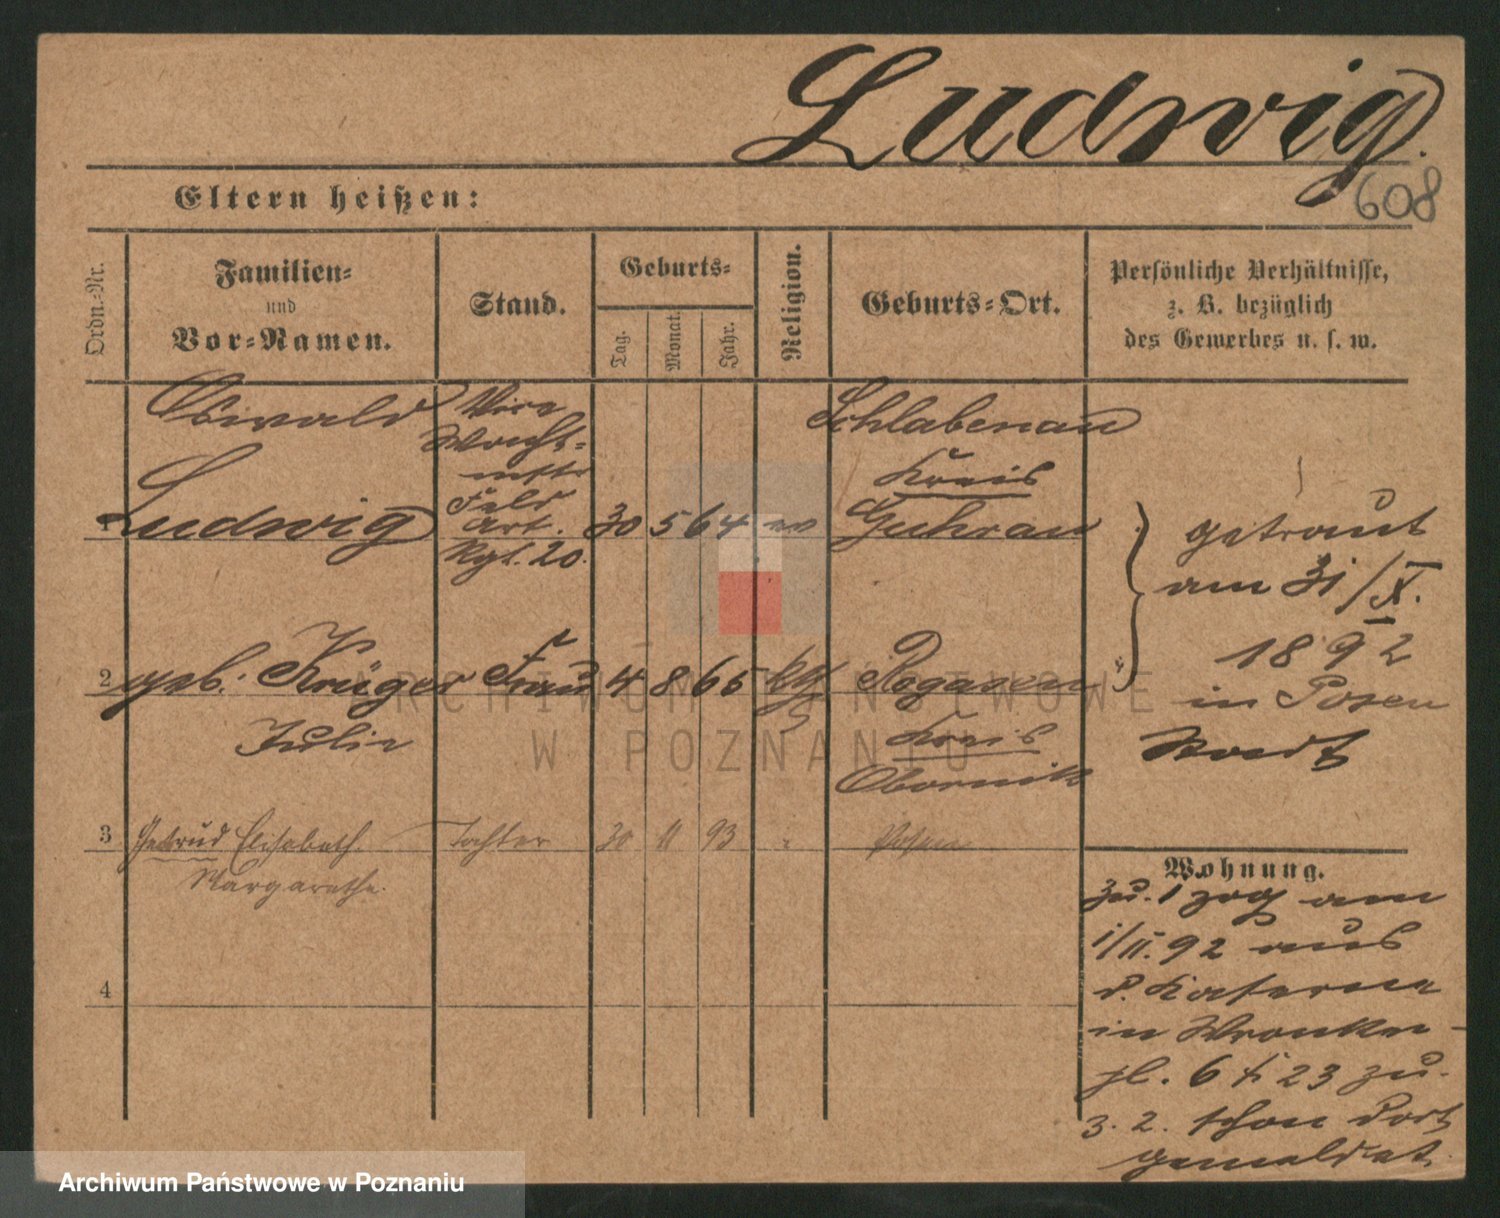 Ludwig.
608
Eltern heißen:
Ordn.-Nr.
Familien-
und
Vor-Namen.
Stand.
Geburts-
Tag.
Monat.
Jahr.
Religion.
Geburts-Ort.
Persönliche Verhältnisse,
z. B. bezüglich
des Gewerbes u. s. w.
Oswald
Ludwig
Vice
Wacht-
mstr
Feld
Art.
Rgt. 20.
1
30 5 64 ev
Schlabenau
Kreis
Guhrau
getraut
am 31/X.
1892
in Posen
Stadt
2 geb. Krüger Frau 4 8 65 kth Rogasen
Julie
Kreis
Obornik
3 Gertrud Elisabeth Tochter 30 11 93 Posen
Margarethe.
4
Wohnung.
zu. 1 zog am
1/11. 92 aus
d. Kaserne
in Wronker-
pl. 6 f. 23 zu.
z. 2. schon dort
gemeldet.
ARCHIWUM PAŃSTWOWE
W POZNANIU
Archiwum Państwowe w Poznaniu